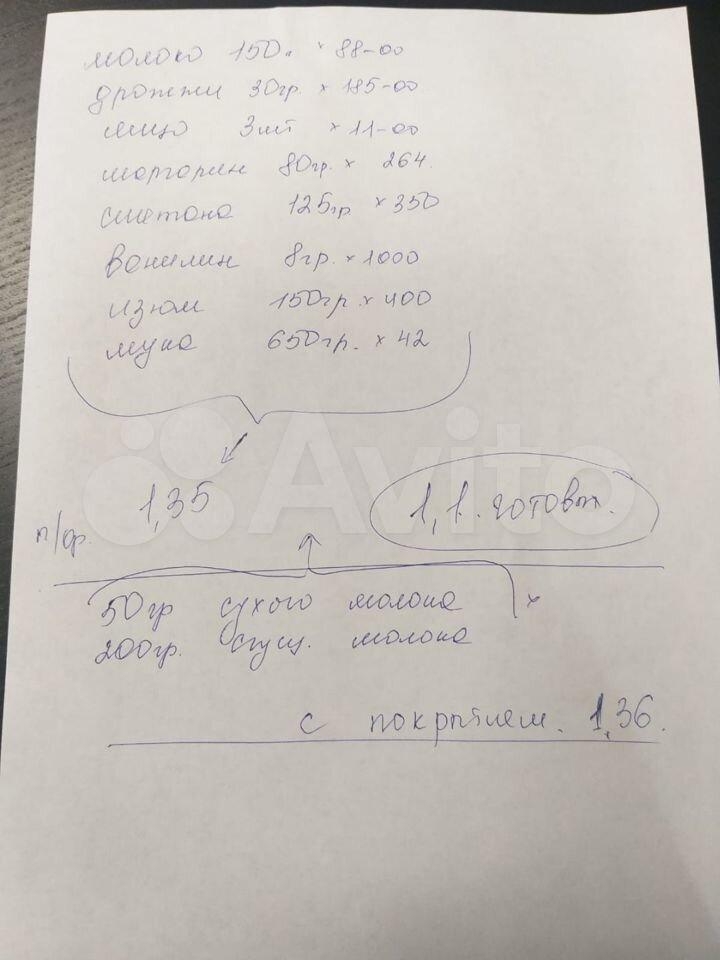 молоко 150л × 88-00
дрожжи 30гр. × 185-00
яицо 3шт × 11-00
моргорин 80гр. × 264.
сметона 125гр × 350
вонилин 8гр. × 1000
изюм 150гр × 400
мука 650гр. × 42
Avito
1,35
1,1. готовых.
п/фр.
50гр сухого молока ×
200гр. сгущ. молока
с покрытием. 1,36.